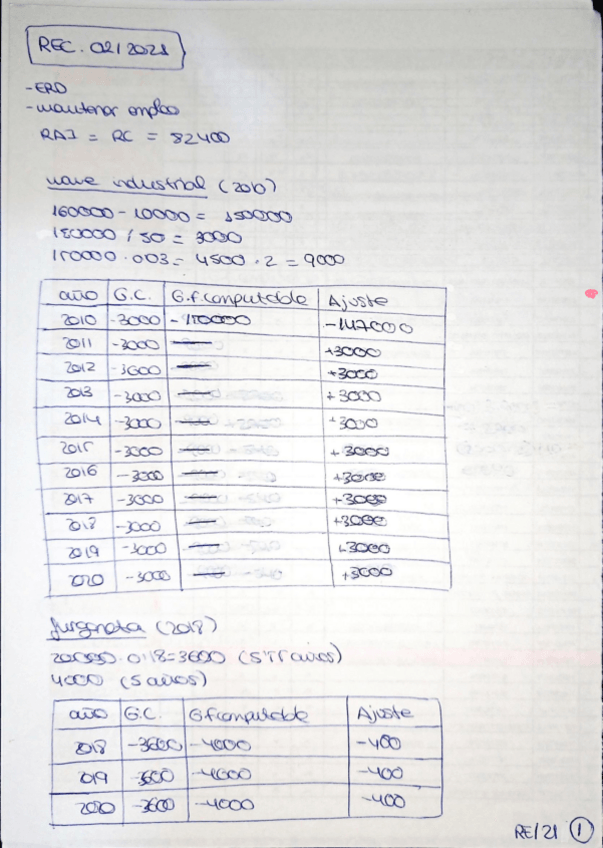 REC. 02/2021
-ERD
-mantener empleo
RAI = RC = 82400
nave industrial (2010)
160000 - 10000 = 150000
150000 / 50 = 3000
150000 · 003 = 4500 · 2 = 9000
año G.C. G.f.computable Ajuste
2010 -3000 -150000 -147000
2011 -3000 — +3000
2012 -3000 — +3000
2013 -3000 — +3000
2014 -3000 — +3000
2015 -3000 — +3000
2016 -3000 — +3000
2017 -3000 — +3000
2018 -3000 — +3000
2019 -3000 — +3000
2020 -3000 — +3000
furgoneta (2018)
20000 · 0'18 = 3600 (5'55 años)
4000 (5 años)
año G.C. G.f.computable Ajuste
2018 -3600 -4000 -400
2019 -3600 -4000 -400
2020 -3600 -4000 -400
RE/21 1